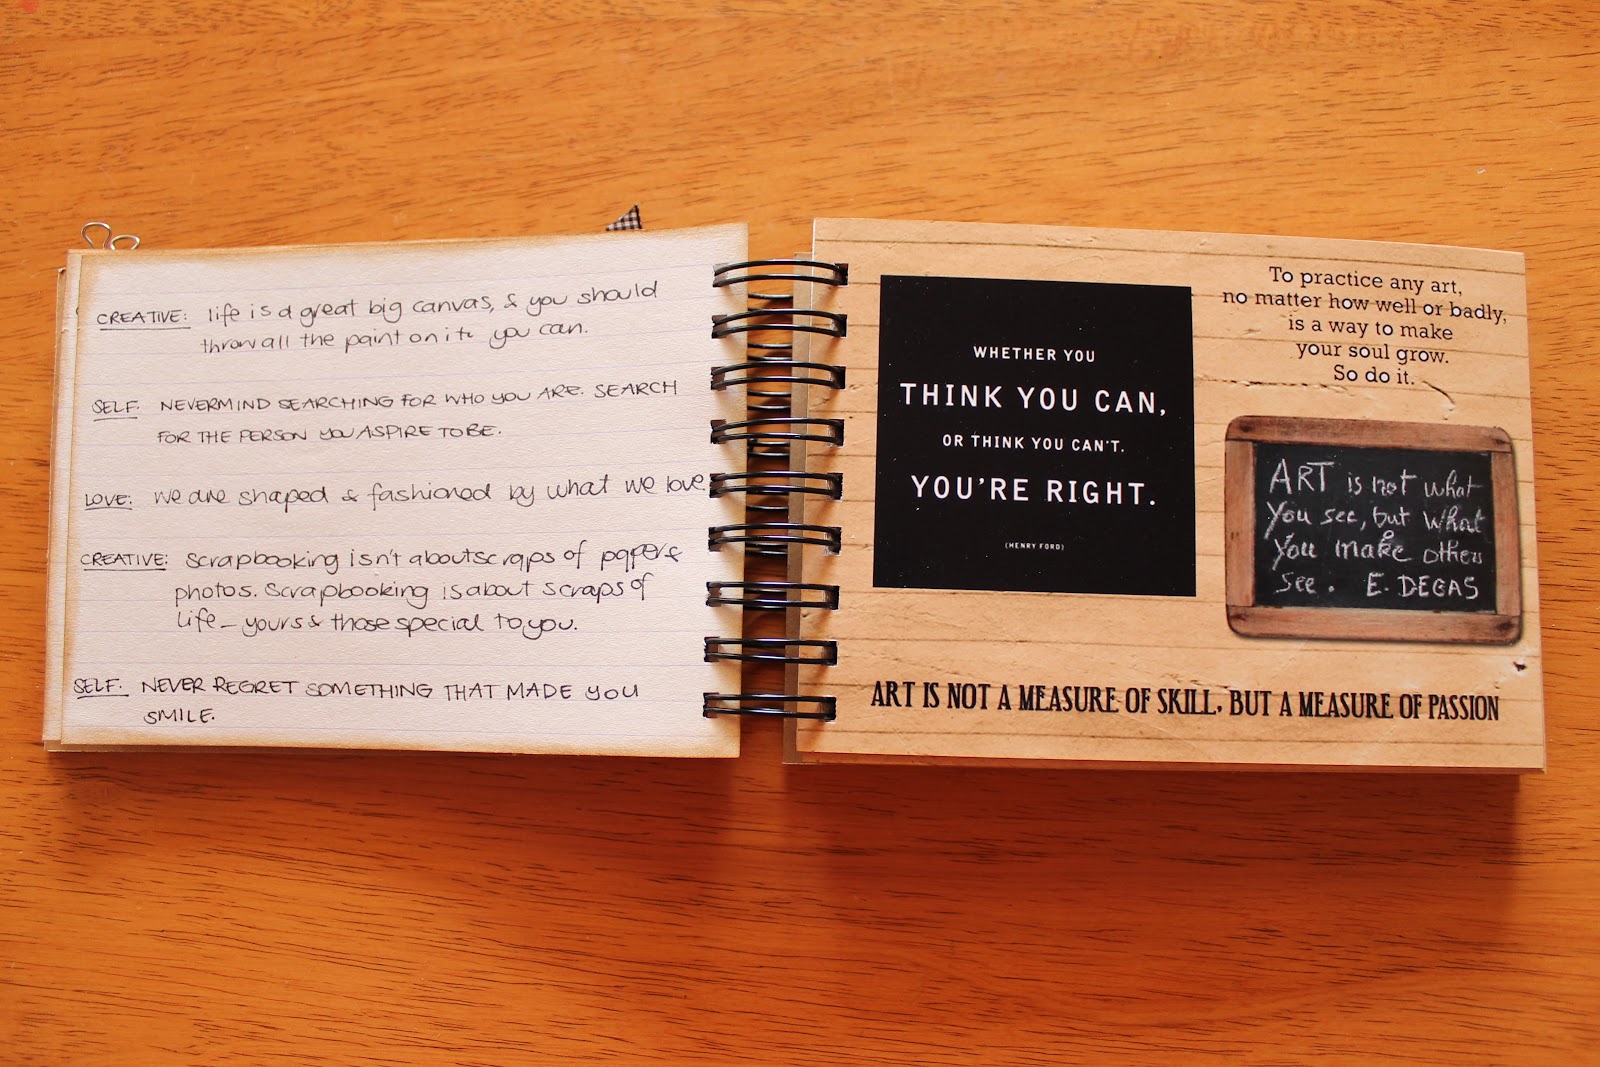 CREATIVE: life is a great big canvas, & you should
throw all the paint on it you can.
SELF: NEVERMIND SEARCHING FOR WHO YOU ARE. SEARCH
FOR THE PERSON YOU ASPIRE TO BE.
LOVE: we are shaped & fashioned by what we love.
CREATIVE: Scrapbooking isn't about scraps of paper &
photos. Scrapbooking is about scraps of
life - yours & those special to you.
SELF: NEVER REGRET SOMETHING THAT MADE YOU
SMILE.
WHETHER YOU
THINK YOU CAN,
OR THINK YOU CAN'T.
YOU'RE RIGHT.
(HENRY FORD)
To practice any art,
no matter how well or badly,
is a way to make
your soul grow.
So do it.
ART is not what
You see, but what
You make others
see. E. DEGAS
ART IS NOT A MEASURE OF SKILL, BUT A MEASURE OF PASSION